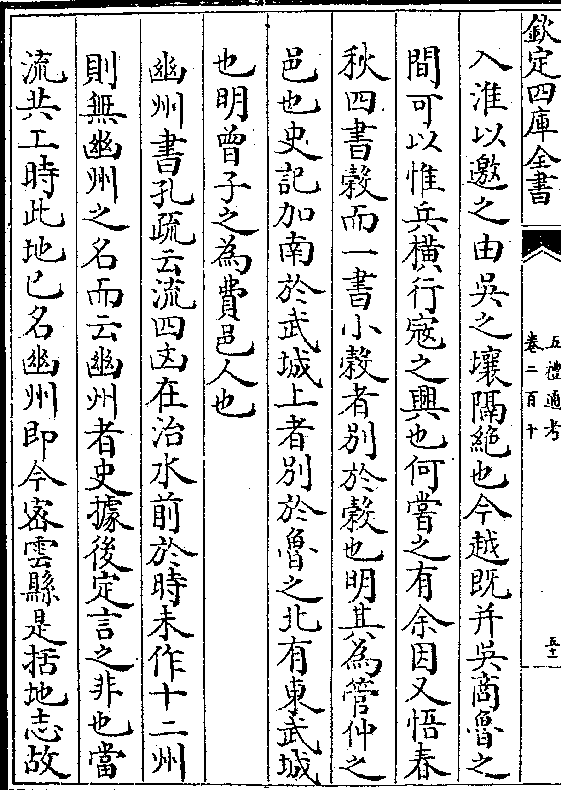 欽定四庫全書
五禮通考
卷二百十
五十一
入淮以邀之由吳之壤隔絶也今越既并吳商魯之
間可以惟兵橫行宼之興也何嘗之有余因又悟春
秋四書糓而一書小糓者别於糓也明其為管仲之
邑也史記加南於武城上者别於魯之北有東武城
也明曾子之為費邑人也
幽州書孔疏云流四凶在治水前於時未作十二州
則無幽州之名而云幽州者史據後定言之非也當
流共工時此地已名幽州即今宻雲縣是括地志故